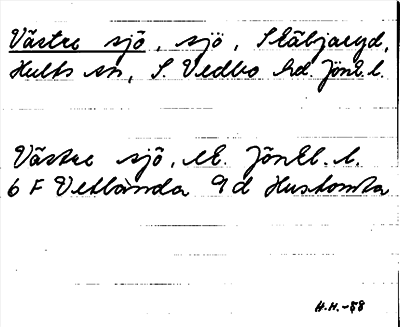 Västre sjö, sjö, Skäbjaryd,
Hults sn, S. Vedbo hd Jönk. l.
Västre sjö, ek. Jönk. l.
6 F Vetlanda 9 d Hustomta
H.H.-58